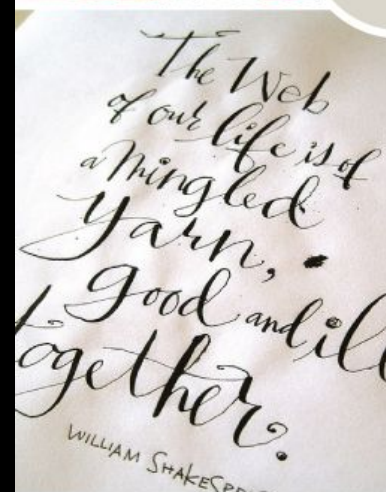 The Web
of our life is of
a mingled
yarn,
good and ill
together.
WILLIAM SHAKESPE